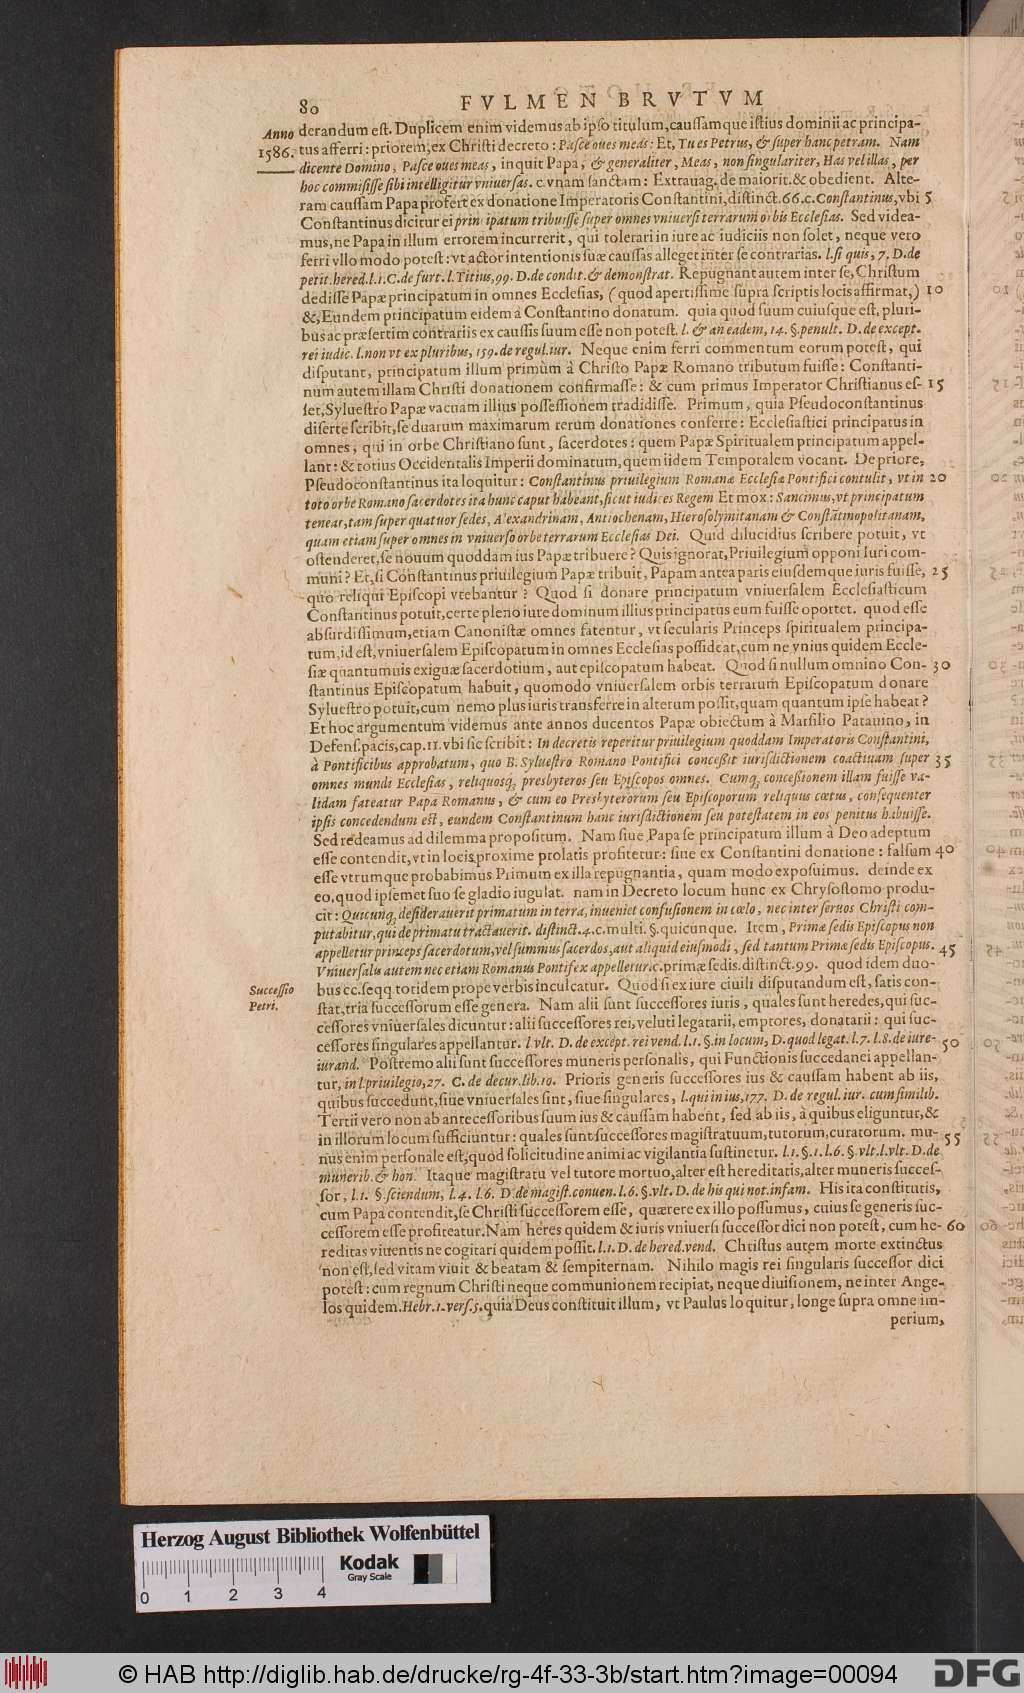 80 FVLMEN BRVTVM
Anno
1586.
derandum est. Duplicem enim videmus ab ipso titulum, caussamque istius dominii ac principa-
tus afferri: priorem, ex Christi decreto: Pasce oues meas: Et, Tu es Petrus, & super hanc petram. Nam
dicente Domino, Pasce oues meas, inquit Papa, & generaliter, Meas, non singulariter, Has vel illas, per
hoc commisisse sibi intelligitur vniuersas. c. vnam sanctam: Extrauag. de maiorit. & obedient. Alte-
ram caussam Papa profert ex donatione Imperatoris Constantini, distinct. 66. c. Constantinus, vbi 5
Constantinus dicitur ei prin ipatum tribuisse super omnes vniuersi terrarum o bis Ecclesias. Sed videa-
mus, ne Papa in illum errorem incurrerit, qui tolerari in iure ac iudiciis non solet, neque vero
ferri vllo modo potest: vt actor intentionis suæ caussas alleget inter se contrarias. l. si quis, 7. D. de
petit. hered. l. 1. C. de furt. l. Titius, 99. D. de condit. & demonstrat. Repugnant autem inter se, Christum
dedisse Papæ principatum in omnes Ecclesias, (quod apertissime supra scriptis locis affirmat,) 10
&, Eundem principatum eidem à Constantino donatum. quia quod suum cuiusque est, pluri-
bus ac præsertim contrariis ex caussis suum esse non potest. l. & an eadem, 14. §. penult. D. de except.
rei iudic. l. non vt ex pluribus, 159. de regul. iur. Neque enim ferri commentum eorum potest, qui
disputant, principatum illum primùm à Christo Papæ Romano tributum fuisse: Constanti-
num autem illam Christi donationem confirmasse: & cum primus Imperator Christianus es- 15
set, Syluestro Papæ vacuam illius possessionem tradidisse. Primum, quia Pseudoconstantinus
diserte scribit, se duarum maximarum rerum donationes conferre: Ecclesiastici principatus in
omnes, qui in orbe Christiano sunt, sacerdotes: quem Papæ Spiritualem principatum appel-
lant: & totius Occidentalis Imperii dominatum, quem iidem Temporalem vocant. De priore,
Pseudoconstantinus ita loquitur: Constantinus priuilegium Romanæ Ecclesiæ Pontifici contulit, vt in 20
toto orbe Romano sacerdotes ita hunc caput habeant, sicut iudices Regem Et mox: Sancimus, vt principatum
teneat, tam super quatuor sedes, Alexandrinam, Antiochenam, Hierosolymitanam & Constātinopolitanam,
quam etiam super omnes in vniuerso orbe terrarum Ecclesias Dei. Quid dilucidius scribere potuit, vt
ostenderet, se nouum quoddam ius Papæ tribuere? Quis ignorat, Priuilegium opponi Iuri com-
muni? Et, si Constantinus priuilegium Papæ tribuit, Papam antea paris eiusdemque iuris fuisse, 25
quo reliqui Episcopi vtebantur? Quod si donare principatum vniuersalem Ecclesiasticum
Constantinus potuit, certe pleno iure dominum illius principatus eum fuisse oportet. quod esse
absurdissimum, etiam Canonistæ omnes fatentur, vt secularis Princeps spiritualem principa-
tum, id est, vniuersalem Episcopatum in omnes Ecclesias possideat, cum ne vnius quidem Eccle-
siæ quantumuis exiguæ sacerdotium, aut episcopatum habeat. Quod si nullum omnino Con- 30
stantinus Episcopatum habuit, quomodo vniuersalem orbis terrarum Episcopatum donare
Syluestro potuit, cum nemo plus iuris transferre in alterum possit, quam quantum ipse habeat?
Et hoc argumentum videmus ante annos ducentos Papæ obiectum à Marsilio Patauino, in
Defens. pacis, cap. 11. vbi sic scribit: In decretis reperitur priuilegium quoddam Imperatoris Constantini,
à Pontificibus approbatum, quo B. Syluestro Romano Pontifici concessit iurisdictionem coactiuam super 35
omnes mundi Ecclesias, reliquosq; presbyteros seu Episcopos omnes. Cumq; concessionem illam fuisse va-
lidam fateatur Papa Romanus, & cum eo Presbyterorum seu Episcoporum reliquus cœtus, consequenter
ipsis concedendum est, eundem Constantinum hanc iurisdictionem seu potestatem in eos penitus habuisse.
Sed redeamus ad dilemma propositum. Nam siue Papa se principatum illum à Deo adeptum
esse contendit, vt in locis proxime prolatis profitetur: siue ex Constantini donatione: falsum 40
esse vtrumque probabimus Primum ex illa repugnantia, quam modo exposuimus. deinde ex
eo, quod ipsemet suo se gladio iugulat. nam in Decreto locum hunc ex Chrysostomo produ-
cit: Quicunq; desiderauerit primatum in terra, inueniet confusionem in cœlo, nec inter seruos Christi com-
putabitur, qui de primatu tractauerit. distinct. 4. c. multi. §. quicunque. Item, Primæ sedis Episcopus non
appelletur princeps sacerdotum, vel summus sacerdos, aut aliquid eiusmodi, sed tantum Primæ sedis Episcopus. 45
Vniuersalis autem nec etiam Romanus Pontifex appelletur. c. primæ sedis. distinct. 99. quod idem duo-
Successio
Petri.
bus cc. seqq. totidem prope verbis inculcatur. Quod si ex iure ciuili disputandum est, satis con-
stat, tria successorum esse genera. Nam alii sunt successores iuris, quales sunt heredes, qui suc-
cessores vniuersales dicuntur: alii successores rei, veluti legatarii, emptores, donatarii: qui suc-
cessores singulares appellantur. l. vlt. D. de except. rei vend. l. 1. §. in locum, D. quod legat. l. 7. l. 8. de iure- 50
iurand. Postremo alii sunt successores muneris personalis, qui Functionis succedanei appellan-
tur, in l. priuilegio, 27. C. de decur. lib. 10. Prioris generis successores ius & caussam habent ab iis,
quibus succedunt, siue vniuersales sint, siue singulares, l. qui in ius, 177. D. de regul. iur. cum similib.
Tertii vero non ab antecessoribus suum ius & caussam habent, sed ab iis, à quibus eliguntur, &
in illorum locum sufficiuntur: quales sunt successores magistratuum, tutorum, curatorum. mu- 55
nus enim personale est, quod solicitudine animi ac vigilantia sustinetur. l. 1. §. 1. l. 6. §. vlt. l. vlt. D. de
munerib. & hon. Itaque magistratu vel tutore mortuo, alter est hereditatis, alter muneris succes-
sor, l. 1. §. sciendum, l. 4. l. 6. D. de magist. conuen. l. 6. §. vlt. D. de his qui not. infam. His ita constitutis,
cum Papa contendit, se Christi successorem esse, quærere ex illo possumus, cuius se generis suc-
cessorem esse profiteatur. Nam heres quidem & iuris vniuersi successor dici non potest, cum he- 60
reditas viuentis ne cogitari quidem possit. l. 1. D. de hered. vend. Christus autem morte extinctus
non est, sed vitam viuit & beatam & sempiternam. Nihilo magis rei singularis successor dici
potest: cum regnum Christi neque communionem recipiat, neque diuisionem, ne inter Ange-
los quidem. Hebr. 1. vers. 5. quia Deus constituit illum, vt Paulus loquitur, longe supra omne im-
perium,
Herzog August Bibliothek Wolfenbüttel
Kodak
Gray Scale
0 1 2 3 4
© HAB http://diglib.hab.de/drucke/rg-4f-33-3b/start.htm?image=00094
DFG